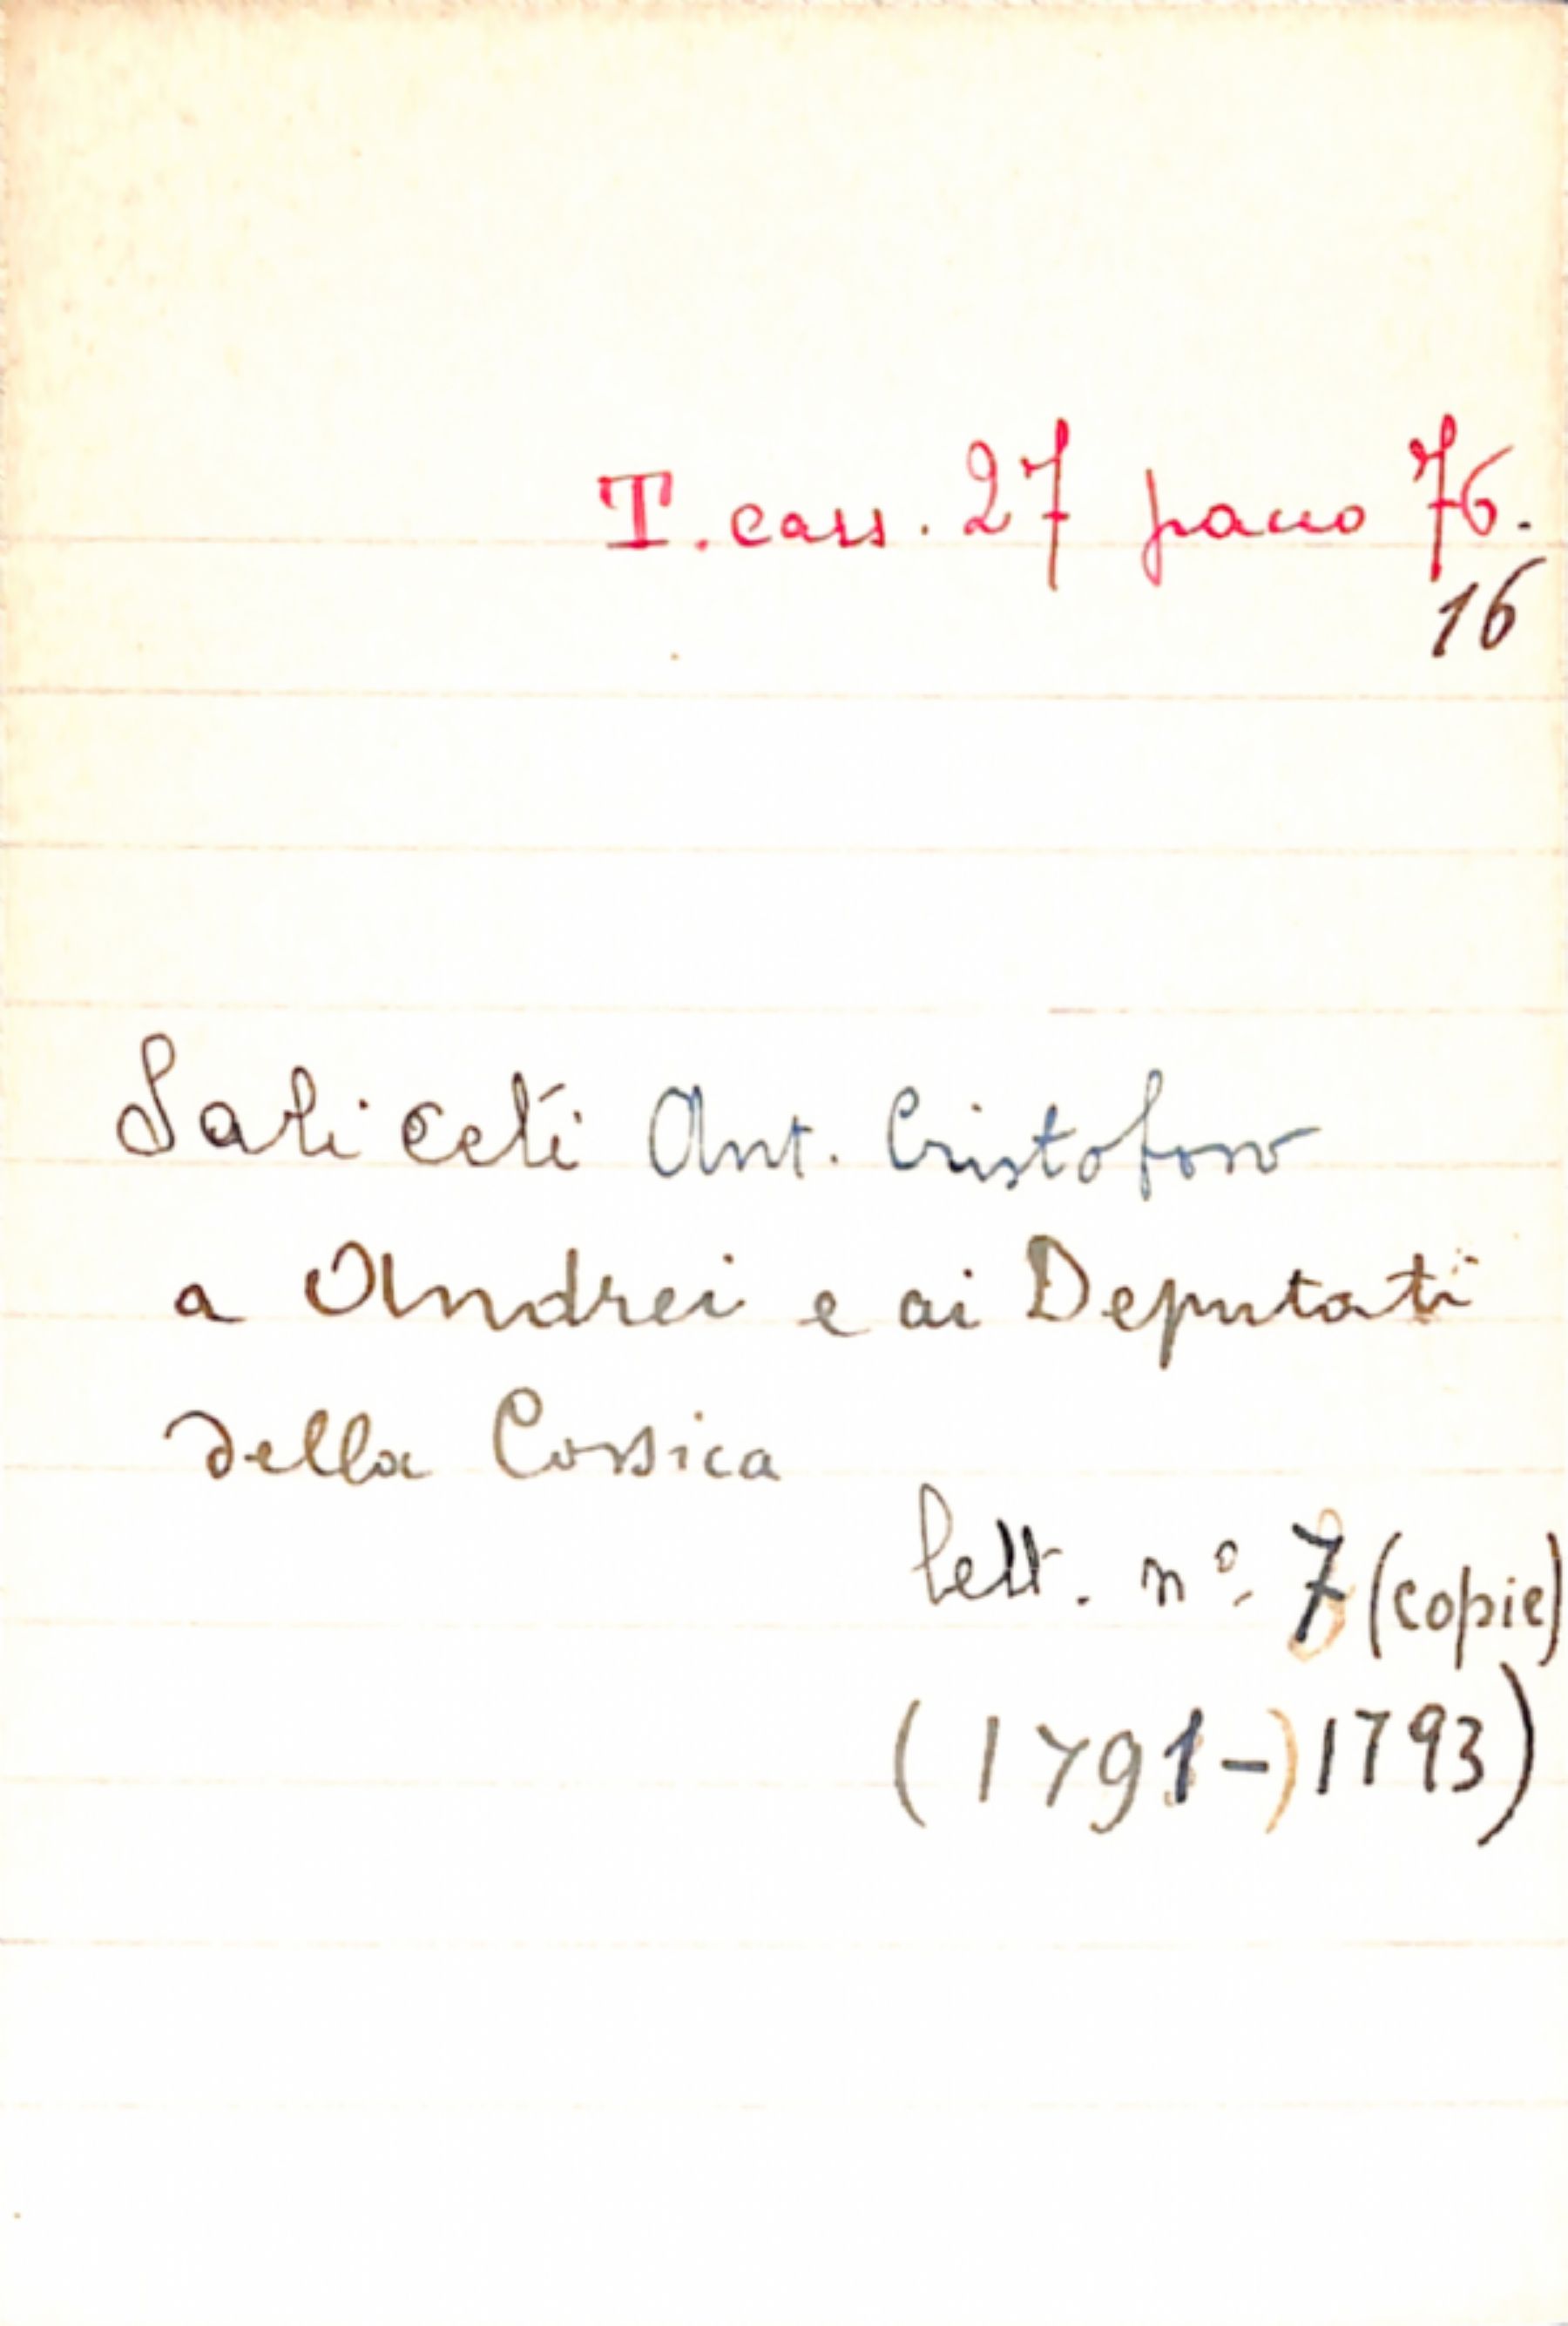 T. cass. 27 pacco 76.
16
Saliceti Ant. Cristoforo
a Andrei e ai Deputati
della Corsica
lett. nº 7 (copie)
(1791-) 1793)